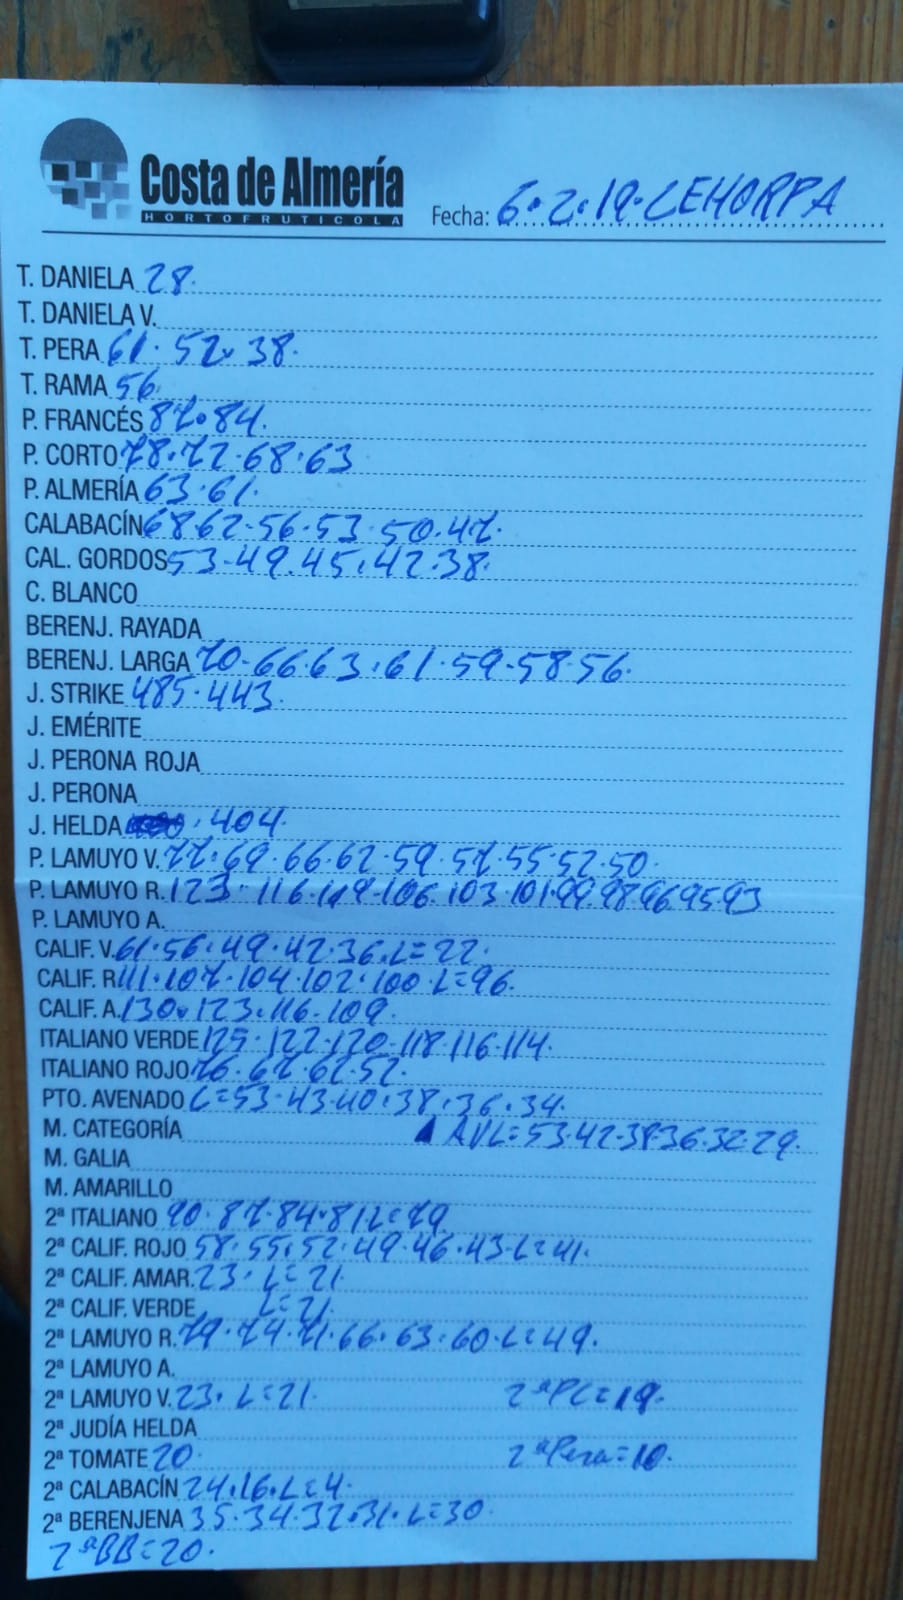 Costa de Almería
HORTOFRUTICOLA
Fecha: 6.2.19. LEHORPA
T. DANIELA 28.
T. DANIELA V.
T. PERA 61. 52. 38.
T. RAMA 56.
P. FRANCÉS 87.84.
P. CORTO 78.72.68.63
P. ALMERÍA 63.61.
CALABACÍN 68 62.56.53.50.47.
CAL. GORDOS 53.49.45.42.38.
C. BLANCO
BERENJ. RAYADA
BERENJ. LARGA 70.66.63.61.59.58.56.
J. STRIKE 485.443.
J. EMÉRITE
J. PERONA ROJA
J. PERONA
J. HELDA . 404.
P. LAMUYO V. 77.69.66.62.59.57.55.52.50.
P. LAMUYO R. 123. 116.119.106.103.101.99.98 96.95.93
P. LAMUYO A.
CALIF. V. 61.56.49.42.36.L=22.
CALIF. R. 111.107.104.102.100.L=96.
CALIF. A. 130.123.116.109.
ITALIANO VERDE 125.122.120.118.116.114.
ITALIANO ROJO 76.67.62.52.
PTO. AVENADO L=53.43.40.38.36.34.
M. CATEGORÍA AVL=53.42.38.36.32.29.
M. GALIA
M. AMARILLO
2ª ITALIANO 90.87.84.81 L=79
2ª CALIF. ROJO 58.55.52.49.46.43.L=41.
2ª CALIF. AMAR. 23. L=21.
2ª CALIF. VERDE L=21.
2ª LAMUYO R. 79.74.71.66.63.60.L=49.
2ª LAMUYO A.
2ª LAMUYO V. 23. L=21. 2ªPC=19.
2ª JUDÍA HELDA
2ª TOMATE 20. 2ªPera=10.
2ª CALABACÍN 24.16.L=4.
2ª BERENJENA 35.34.32.31.L=30
2ªBB=20.